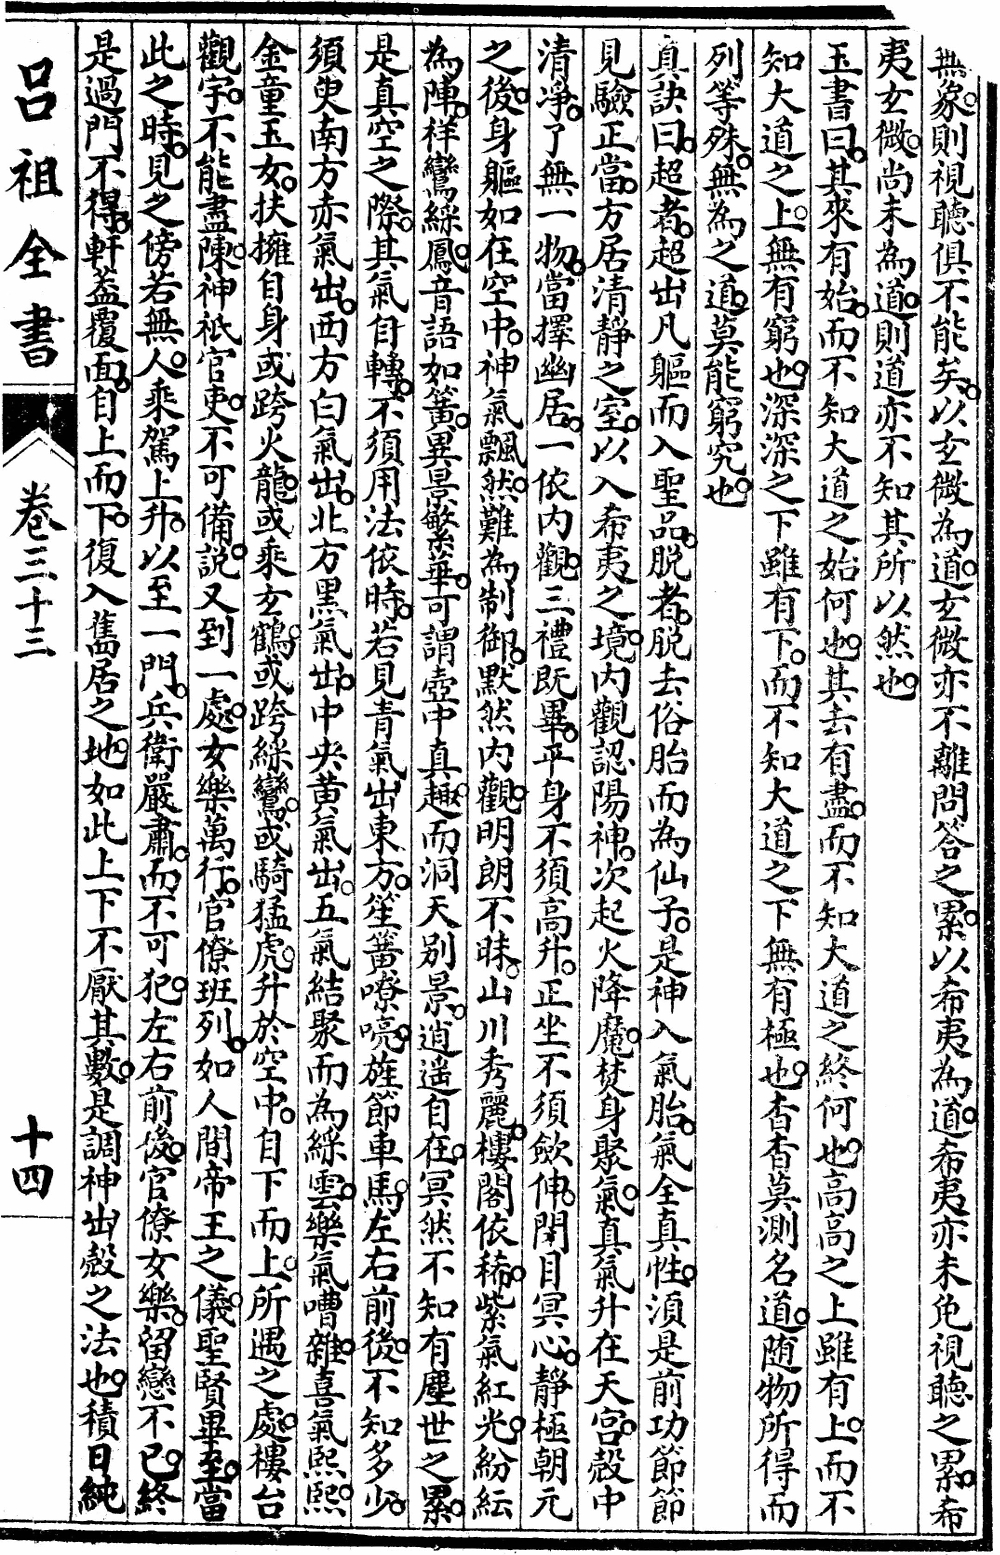 無象則視聽俱不能矣以玄微為道玄微亦不離問答之累以希夷為道希夷亦未免視聽之累希
夷玄微尚未為道則道亦不知其所以然也
玉書曰其來有始而不知大道之始何也其去有盡而不知大道之終何也高高之上雖有上而不
知大道之上無有窮也深深之下雖有下而不知大道之下無有極也杳杳莫測名道隨物所得而
列等殊無為之道莫能窮究也
真訣曰超者超出凡軀而入聖品脱者脱去俗胎而為仙子是神入氣胎氣全真性須是前功節節
見驗正當方居清靜之室以入希夷之境内觀認陽神次起火降魔焚身聚氣真氣升在天宮殼中
清凈了無一物當擇幽居一依内觀三禮既畢平身不須高升正坐不須歛伸閉目冥心靜極朝元
之後身軀如在空中神氣飄然難為制御默然内觀明朗不昧山川秀麗樓閣依稀紫氣紅光紛紜
為陣祥鸞綵鳳音語如簧異景繁華可謂壺中真趣而洞天别景逍遥自在冥然不知有塵世之累
是真空之際其氣自轉不須用法依時若見青氣出東方笙簧嘹喨旌節車馬左右前後不知多少
須臾南方赤氣出西方白氣出北方黑氣出中央黄氣出五氣結聚而為綵雲樂氣嘈雜喜氣熙熙
金童玉女扶擁自身或跨火龍或乘玄鶴或跨綵鸞或騎猛虎升於空中自下而上所遇之處樓台
觀宇不能盡陳神祇官吏不可備説又到一處女樂萬行官僚班列如人間帝王之儀聖賢畢至當
此之時見之傍若無人乘駕上升以至一門兵衛嚴肅而不可犯左右前後官僚女樂留戀不已終
是過門不得軒蓋覆面自上而下復入舊居之地如此上下不厭其數是調神出殼之法也積日純
吕祖全書
卷三十三
十四